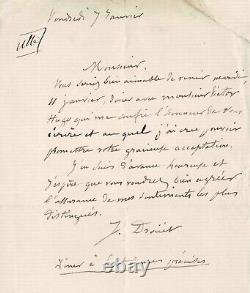 Vendredi 7 Janvier
Monsieur,
Vous seriez bien aimable de venir mardi,
11 janvier, dîner avec monsieur Victor
Hugo qui me confie l'honneur de vous
écrire et au quel j'ai cru pouvoir
promettre votre gracieuse acceptation.
J'en suis d'avance heureuse et
j'espère que vous voudrez bien agréer
l'assurance de mes sentiments les plus
distingués.
J. Drouet
Dîner à heures précises